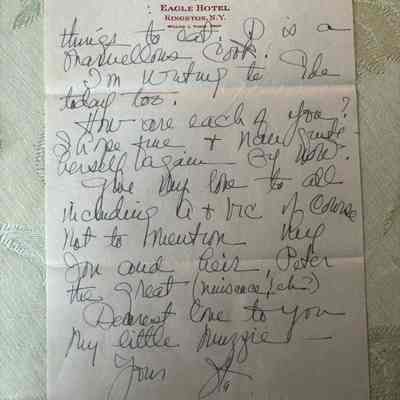 EAGLE HOTEL
KINGSTON, N.Y.
things to eat. D is a
marvellous Cook!
I'm writing to Ide
today too.
How are each of you?
I hope fine + Nan quite
herself again by now.
Give my love to all
including A + Vic of course
not to mention my
Son and heir, Peter
the great (nuisance! eh?)
Dearest love to you
My little Muzzie —
Yours